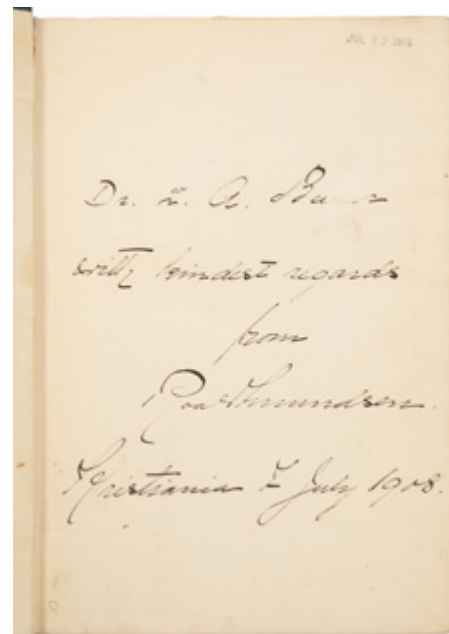 Dr. L. A. Bauer
with kindest regards
from
Roald Amundsen.
Kristiania 7 July 1908.